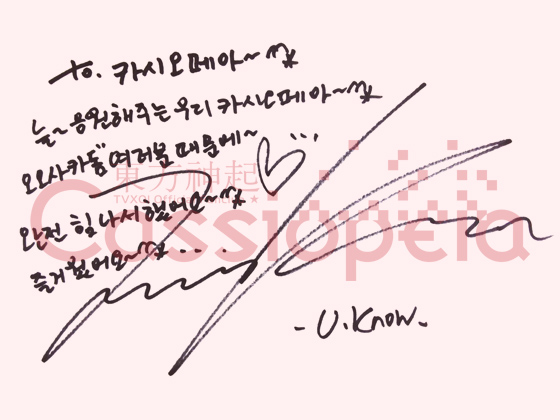 to. 카시오페아~
늘~ 응원해주는 우리 카시오페아~
오오사카돔 여러분 때문에~ ...
완전 힘 나서 했어요~
즐거웠어요~ ...
東方神起
Cassiopeia
- U.Know -